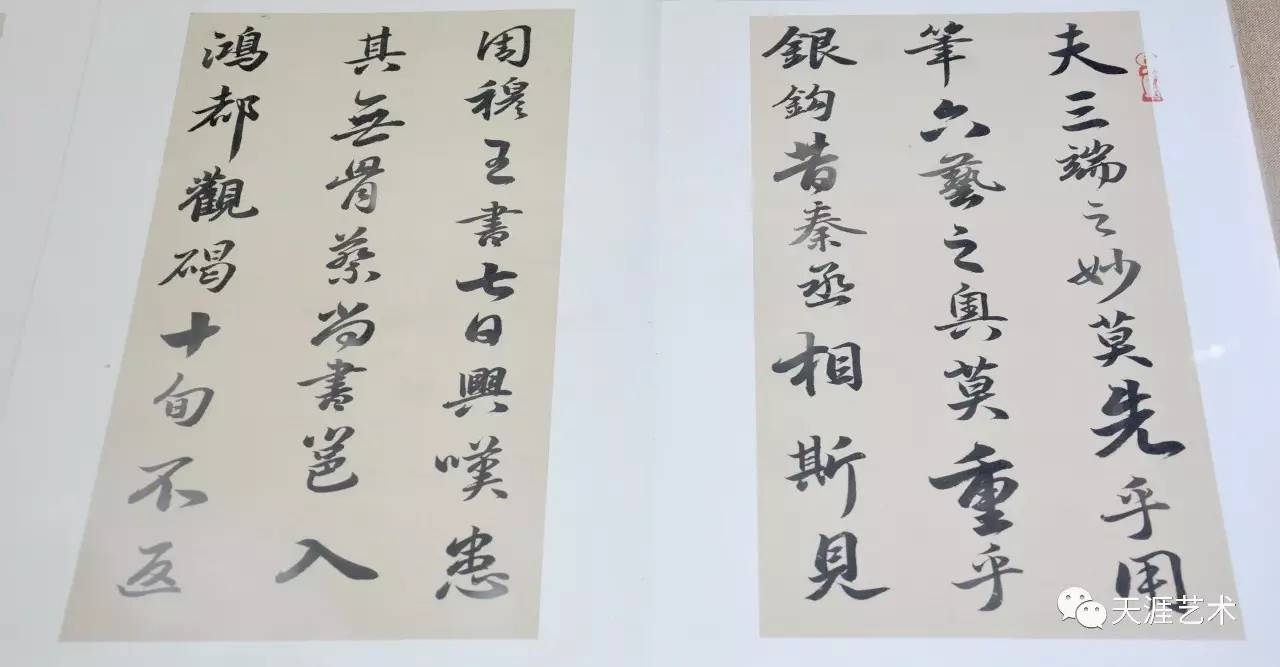 夫三端之妙莫先乎用
筆六藝之奧莫重乎
銀鈎昔秦丞相斯見
周穆王書七日興嘆患
其無骨蔡尚書邕入
鴻都觀碣十旬不返
天涯艺术